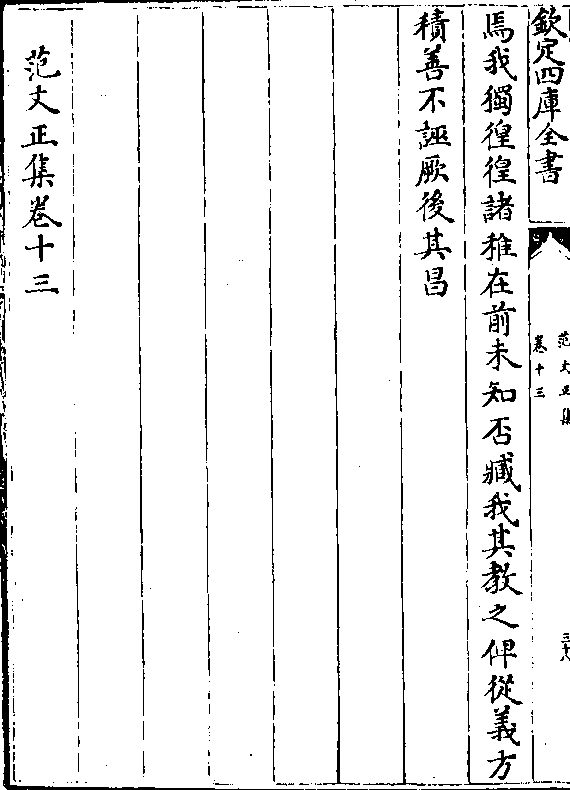 欽定四庫全書
范文正集
卷十三
三十八
焉我獨徨徨諸稚在前未知否臧我其教之俾從義方
積善不誣厥後其昌
范文正集卷十三